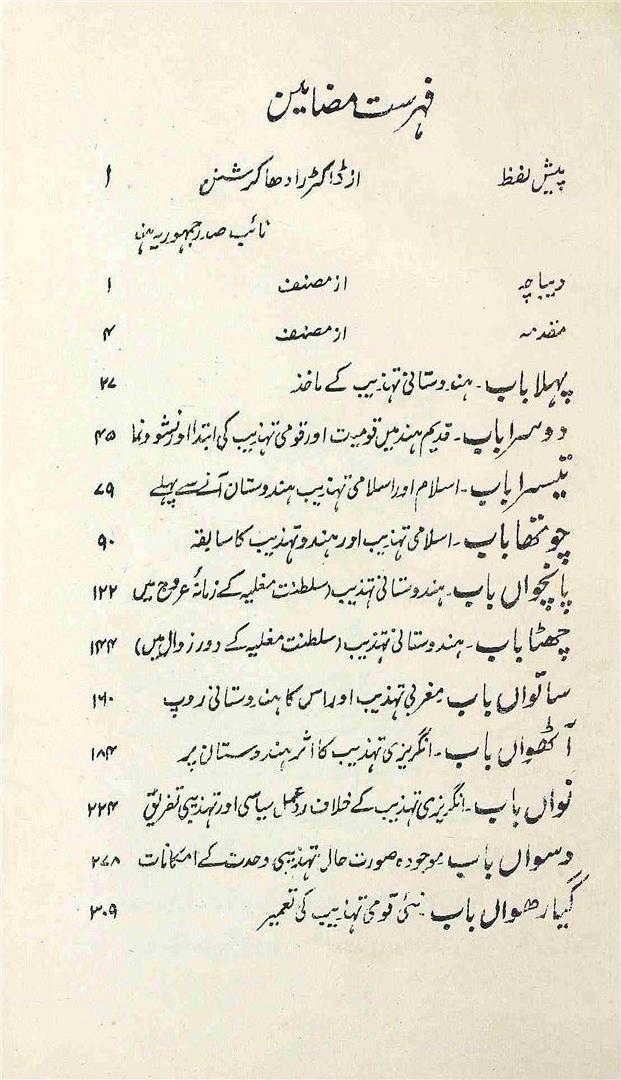 فہرست مضامین
پیش لفظ از ڈاکٹر رادھا کرشنن ا
نائب صدر جمہوریہ ہند
دیباچہ از مصنف ۱
مقدمہ از مصنف ۴
پہلا باب۔ ہندوستانی تہذیب کے ماخذ ۲۷
دوسرا باب۔ قدیم ہند میں قومیت اور قومی تہذیب کی ابتدا اور نشو ونما ۴۵
تیسرا باب۔ اسلام اور اسلامی تہذیب ہندوستان آنے سے پہلے ۷۹
چوتھا باب۔ اسلامی تہذیب اور ہندو تہذیب کا سابقہ ۹۰
پانچواں باب۔ ہندوستانی تہذیب (سلطنت مغلیہ کے زمانۂ عروج میں ۱۲۲
چھٹا باب۔ ہندوستانی تہذیب (سلطنت مغلیہ کے دور زوال میں) ۱۴۴
ساتواں باب مغربی تہذیب اور اس کا ہندوستانی روپ ۱۶۰
آٹھواں باب۔ انگریزی تہذیب کا اثر ہندوستان پر ۱۸۴
نواں باب۔ انگریزی تہذیب کے خلاف ردعمل سیاسی اور تہذیبی تفریق ۲۲۴
دسواں باب موجودہ صورت حال تہذیبی وحدت کے امکانات ۲۷۸
گیارھواں باب۔ نئی قومی تہذیب کی تعمیر ۳۰۹